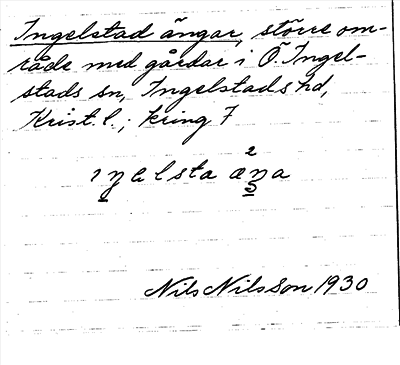 Ingelstad ängar, större om-
råde med gårdar i Ö. Ingel-
stads sn, Ingelstads hd,
Krist. l.; kring 7
Nils Nilsson 1930